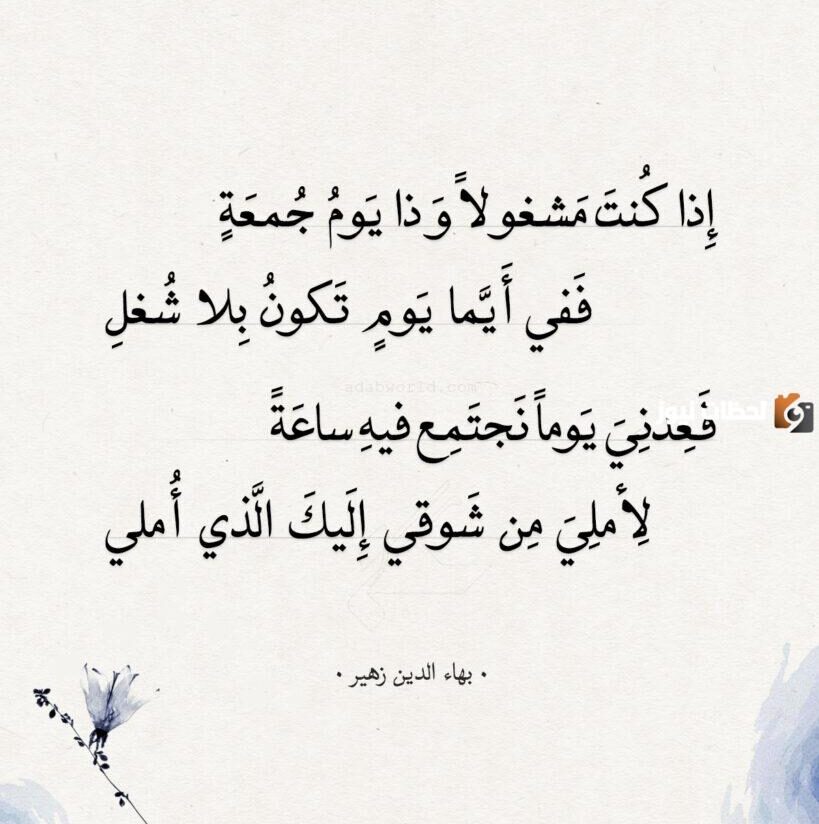 إِذا كُنتَ مَشغولاً وَذا يَومُ جُمعَةٍ
فَفي أَيَّما يَومٍ تَكونُ بِلا شُغلِ
adabworld.com
لحظات نيوز
فَعِدنِيَ يَوماً نَجتَمِع فيهِ ساعَةً
لِأَملِيَ مِن شَوقي إِلَيكَ الَّذي أُملي
• بهاء الدين زهير •